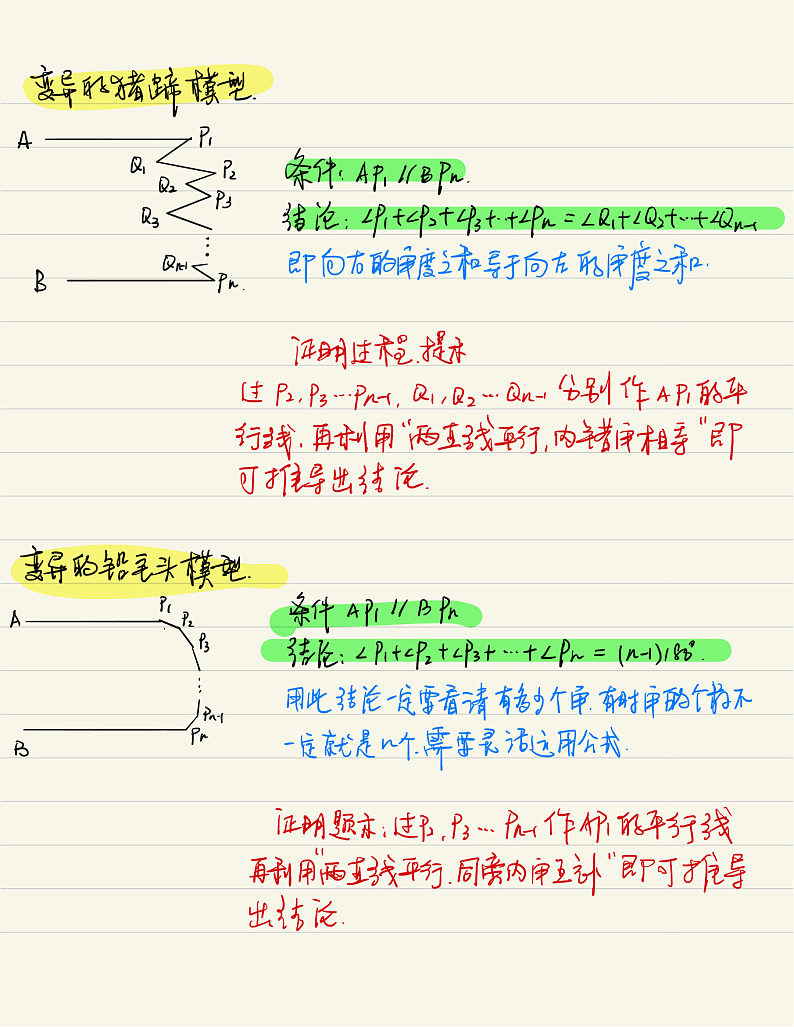 变异的猪蹄模型.
A P1
Q1 P2
Q2 P3
Q3
Qn-1
B Pn.
条件: AP1 // BPn.
结论: ∠P1+∠P2+∠P3+…+∠Pn = ∠Q1+∠Q2+…+∠Qn-1
即向右的角度之和等于向左的角度之和.
证明过程.提示
过 P2, P3…Pn-1, Q1, Q2…Qn-1 分别作AP1的平
行线, 再利用“两直线平行,内错角相等”即
可推导出结论.
变异的铅笔头模型.
A P1 P2
P3
Pn-1
B Pn
条件 AP1 // BPn
结论: ∠P1+∠P2+∠P3+…+∠Pn = (n-1)180°.
用此结论一定要看清有多少个角.有时角的个数不
一定就是n个.需要灵活运用公式.
证明题示: 过P2, P3…Pn-1作AP1的平行线
再利用“两直线平行.同旁内角互补”即可推导
出结论.